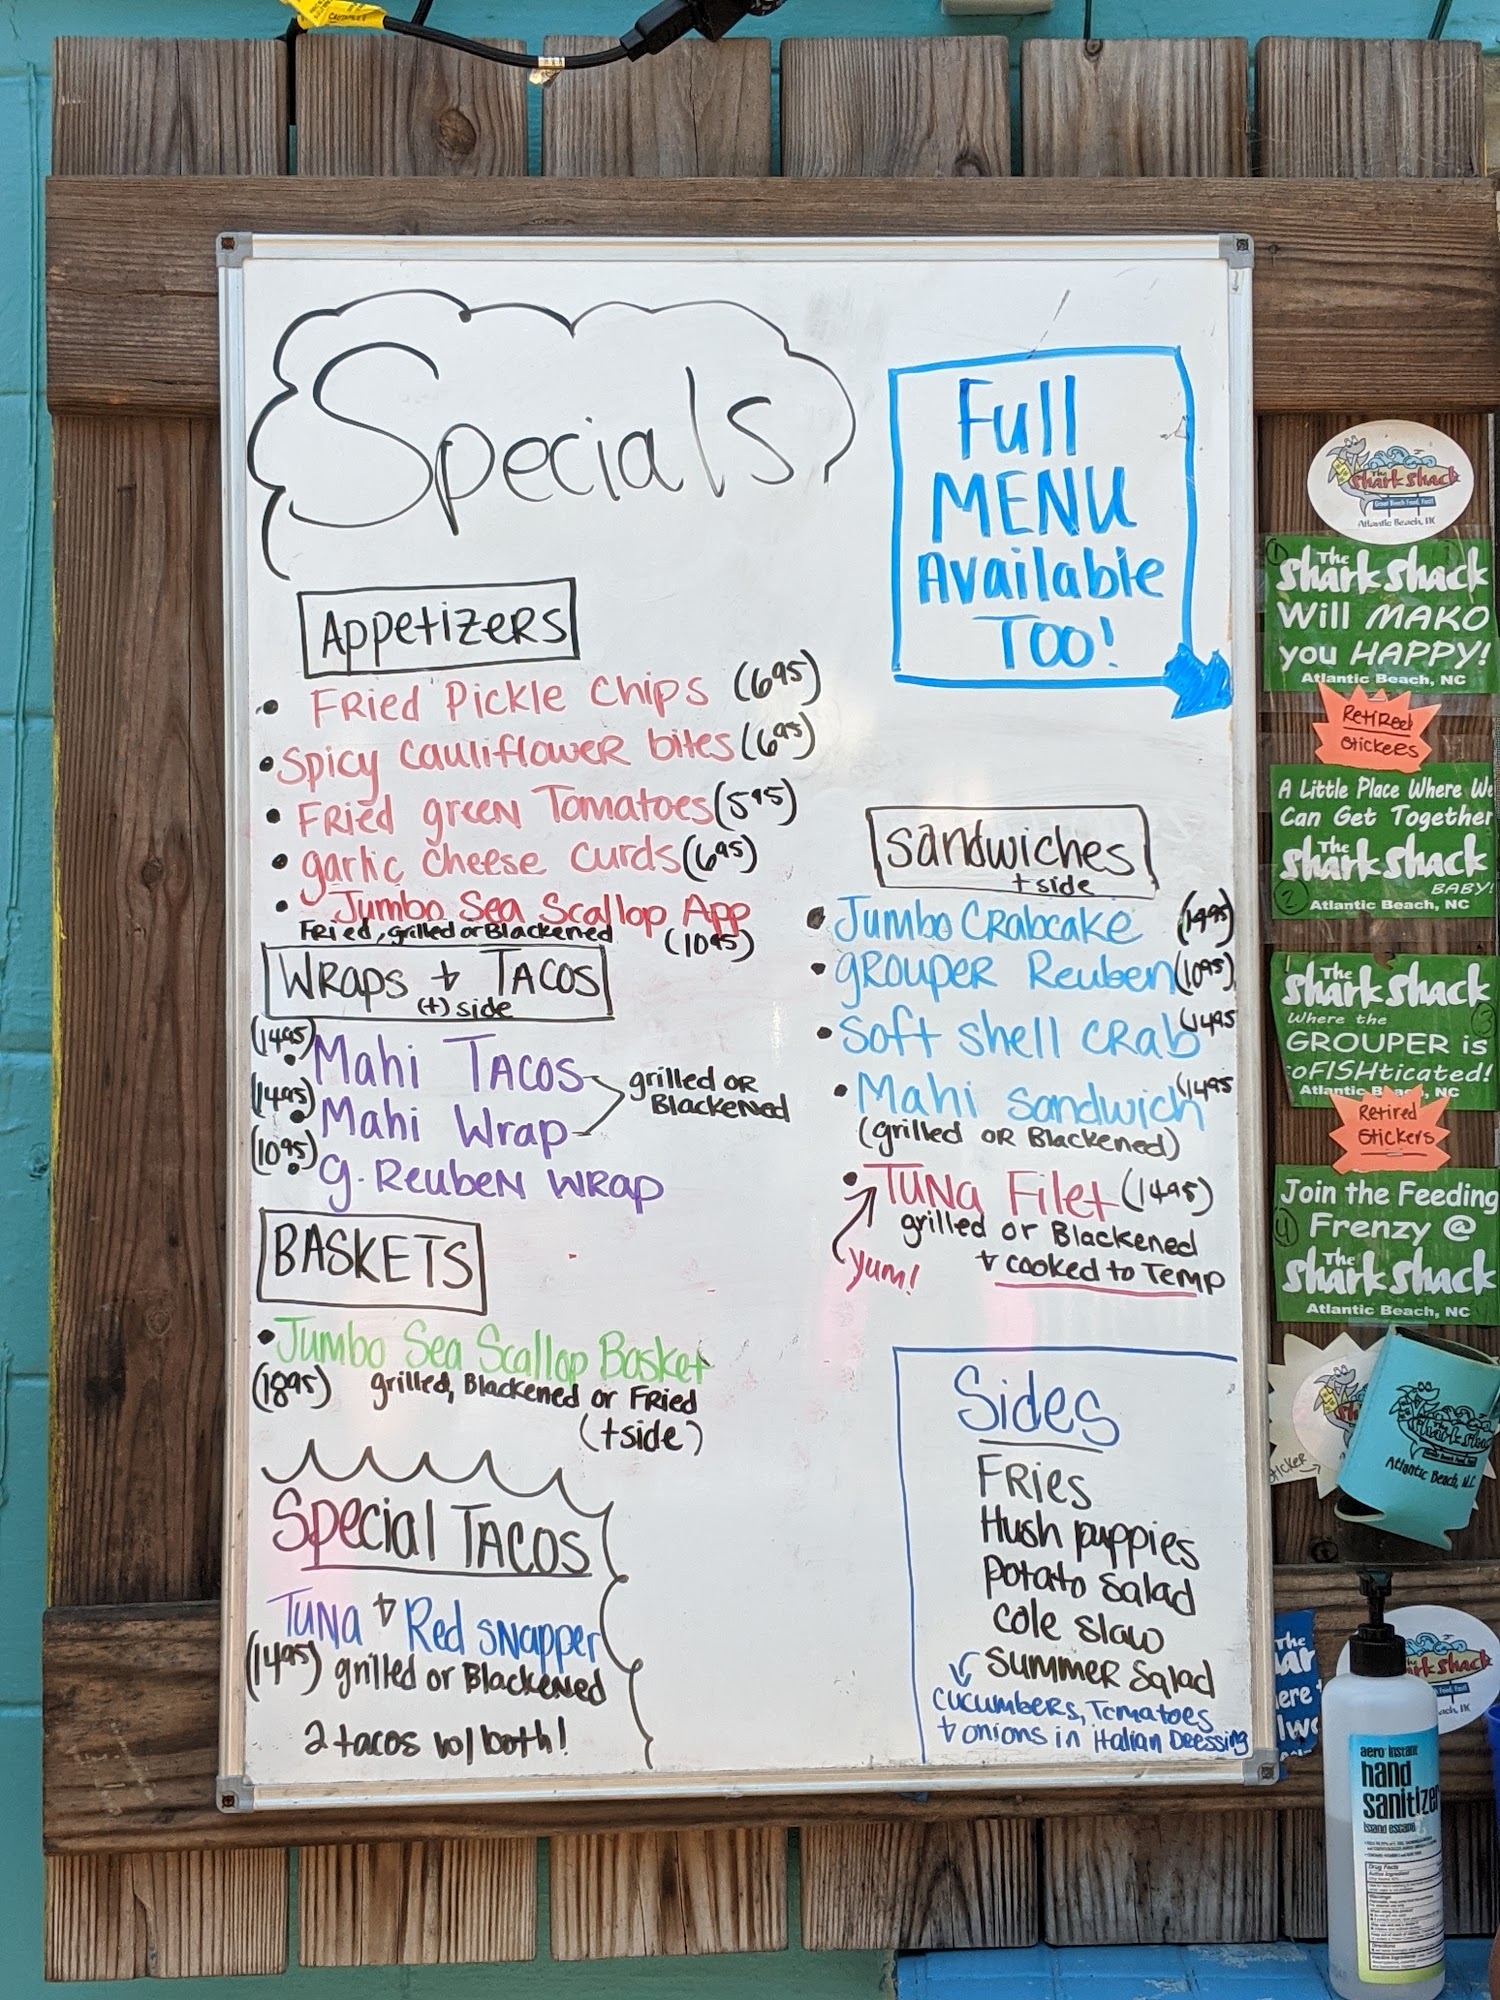 Specials
Full
MENU
Available
TOO!
Appetizers
• Fried Pickle Chips (6.95)
• Spicy Cauliflower bites (6.95)
• Fried green Tomatoes (5.95)
• garlic cheese curds (6.95)
• Jumbo Sea Scallop App
Fried, grilled or Blackened (10.95)
Wraps + Tacos
(+) side
(14.95) • Mahi Tacos
(14.95) • Mahi Wrap
grilled or
Blackened
(10.95) • g. Reuben wrap
BASKETS
• Jumbo Sea Scallop Basket
(18.95) grilled, Blackened or Fried
(+side)
Special Tacos
Tuna + Red snapper
(14.95) grilled or Blackened
2 tacos w/ both!
Sandwiches
+ side
• Jumbo Crabcake (14.95)
• grouper Reuben (10.95)
• Soft shell crab (14.95
• Mahi sandwich (14.95
(grilled or Blackened)
• Tuna Filet (14.95)
grilled or Blackened
+ cooked to Temp
Yum!
Sides
Fries
Hush puppies
Potato salad
cole slaw
summer salad
cucumbers, Tomatoes
+ onions in italian Dressing
The
Shark Shack
Great Beach Food, Fast!
Atlantic Beach, NC
The
Shark Shack
Will MAKO
you HAPPY!
Atlantic Beach, NC
Retired
Stickers
A Little Place Where We
Can Get Together
Shark Shack
BABY!
Atlantic Beach, NC
The
Shark Shack
Where the
GROUPER is
oFISHticated!
Atlantic Beach, NC
Retired
Stickers
Join the Feeding
Frenzy @
The
Shark Shack
Atlantic Beach, NC
Sticker
The
Shark Shack
Atlantic Beach, N.C.
The
ar
ere
lwa
rk Shack
ach, NC
aero instant
hand
sanitizer
island escape
Drug Facts